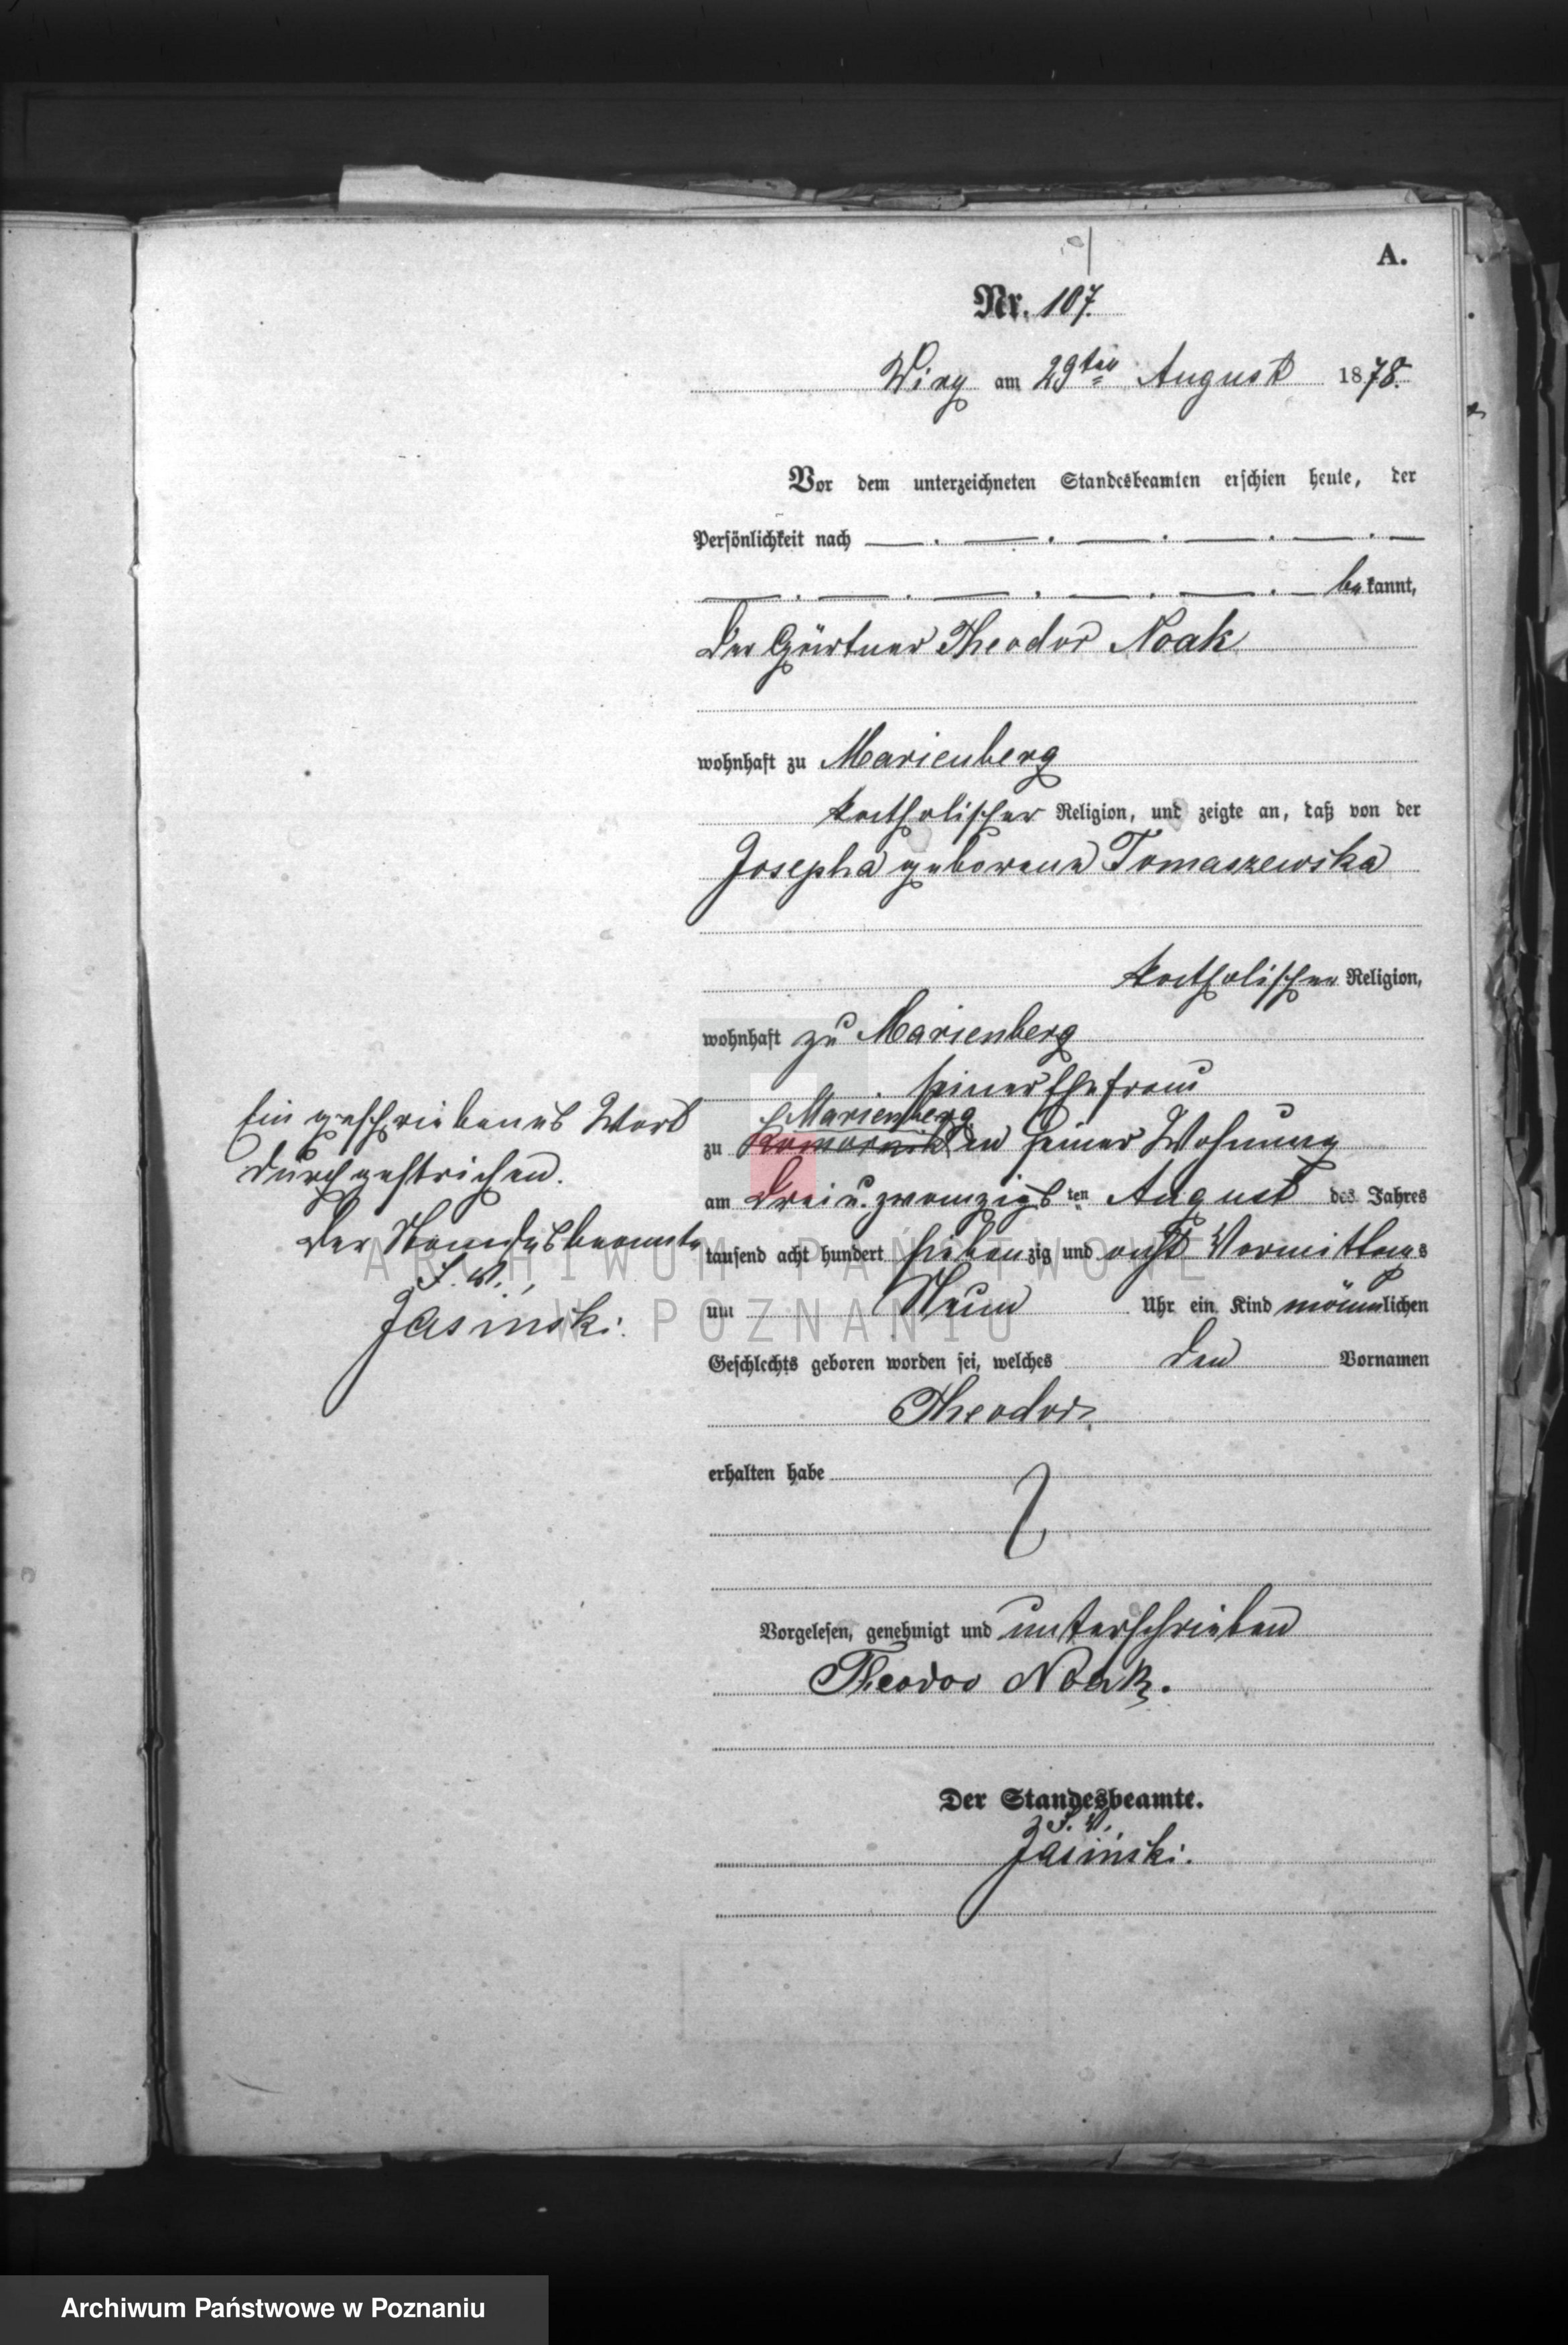 A.
Nr. 107.
Wiry am 29ten August 1878.
Vor dem unterzeichneten Standesbeamten erschien heute, der
Persönlichkeit nach
bekannt,
der Gärtner Theodor Noak
wohnhaft zu Marienberg
katholischer Religion, und zeigte an, daß von der
Josepha geborene Tomaszewska
katholischer Religion,
wohnhaft zu Marienberg
seiner Ehefrau
Marienberg
zu Komornik in seiner Wohnung
am drei u. zwanzigsten August des Jahres
tausend acht hundert siebenzig und acht Vormittags
um Neun Uhr ein Kind männlichen
Geschlechts geboren worden sei, welches den Vornamen
Theodor
erhalten habe
Vorgelesen, genehmigt und unterschrieben
Theodor Noak.
Der Standesbeamte.
J. V.
Jasinski.
Ein geschriebenes Wort
durchgestrichen.
Der Standesbeamte
J. V.,
Jasinski.
ARCHIWUM PAŃSTWOWE
W POZNANIU
Archiwum Państwowe w Poznaniu